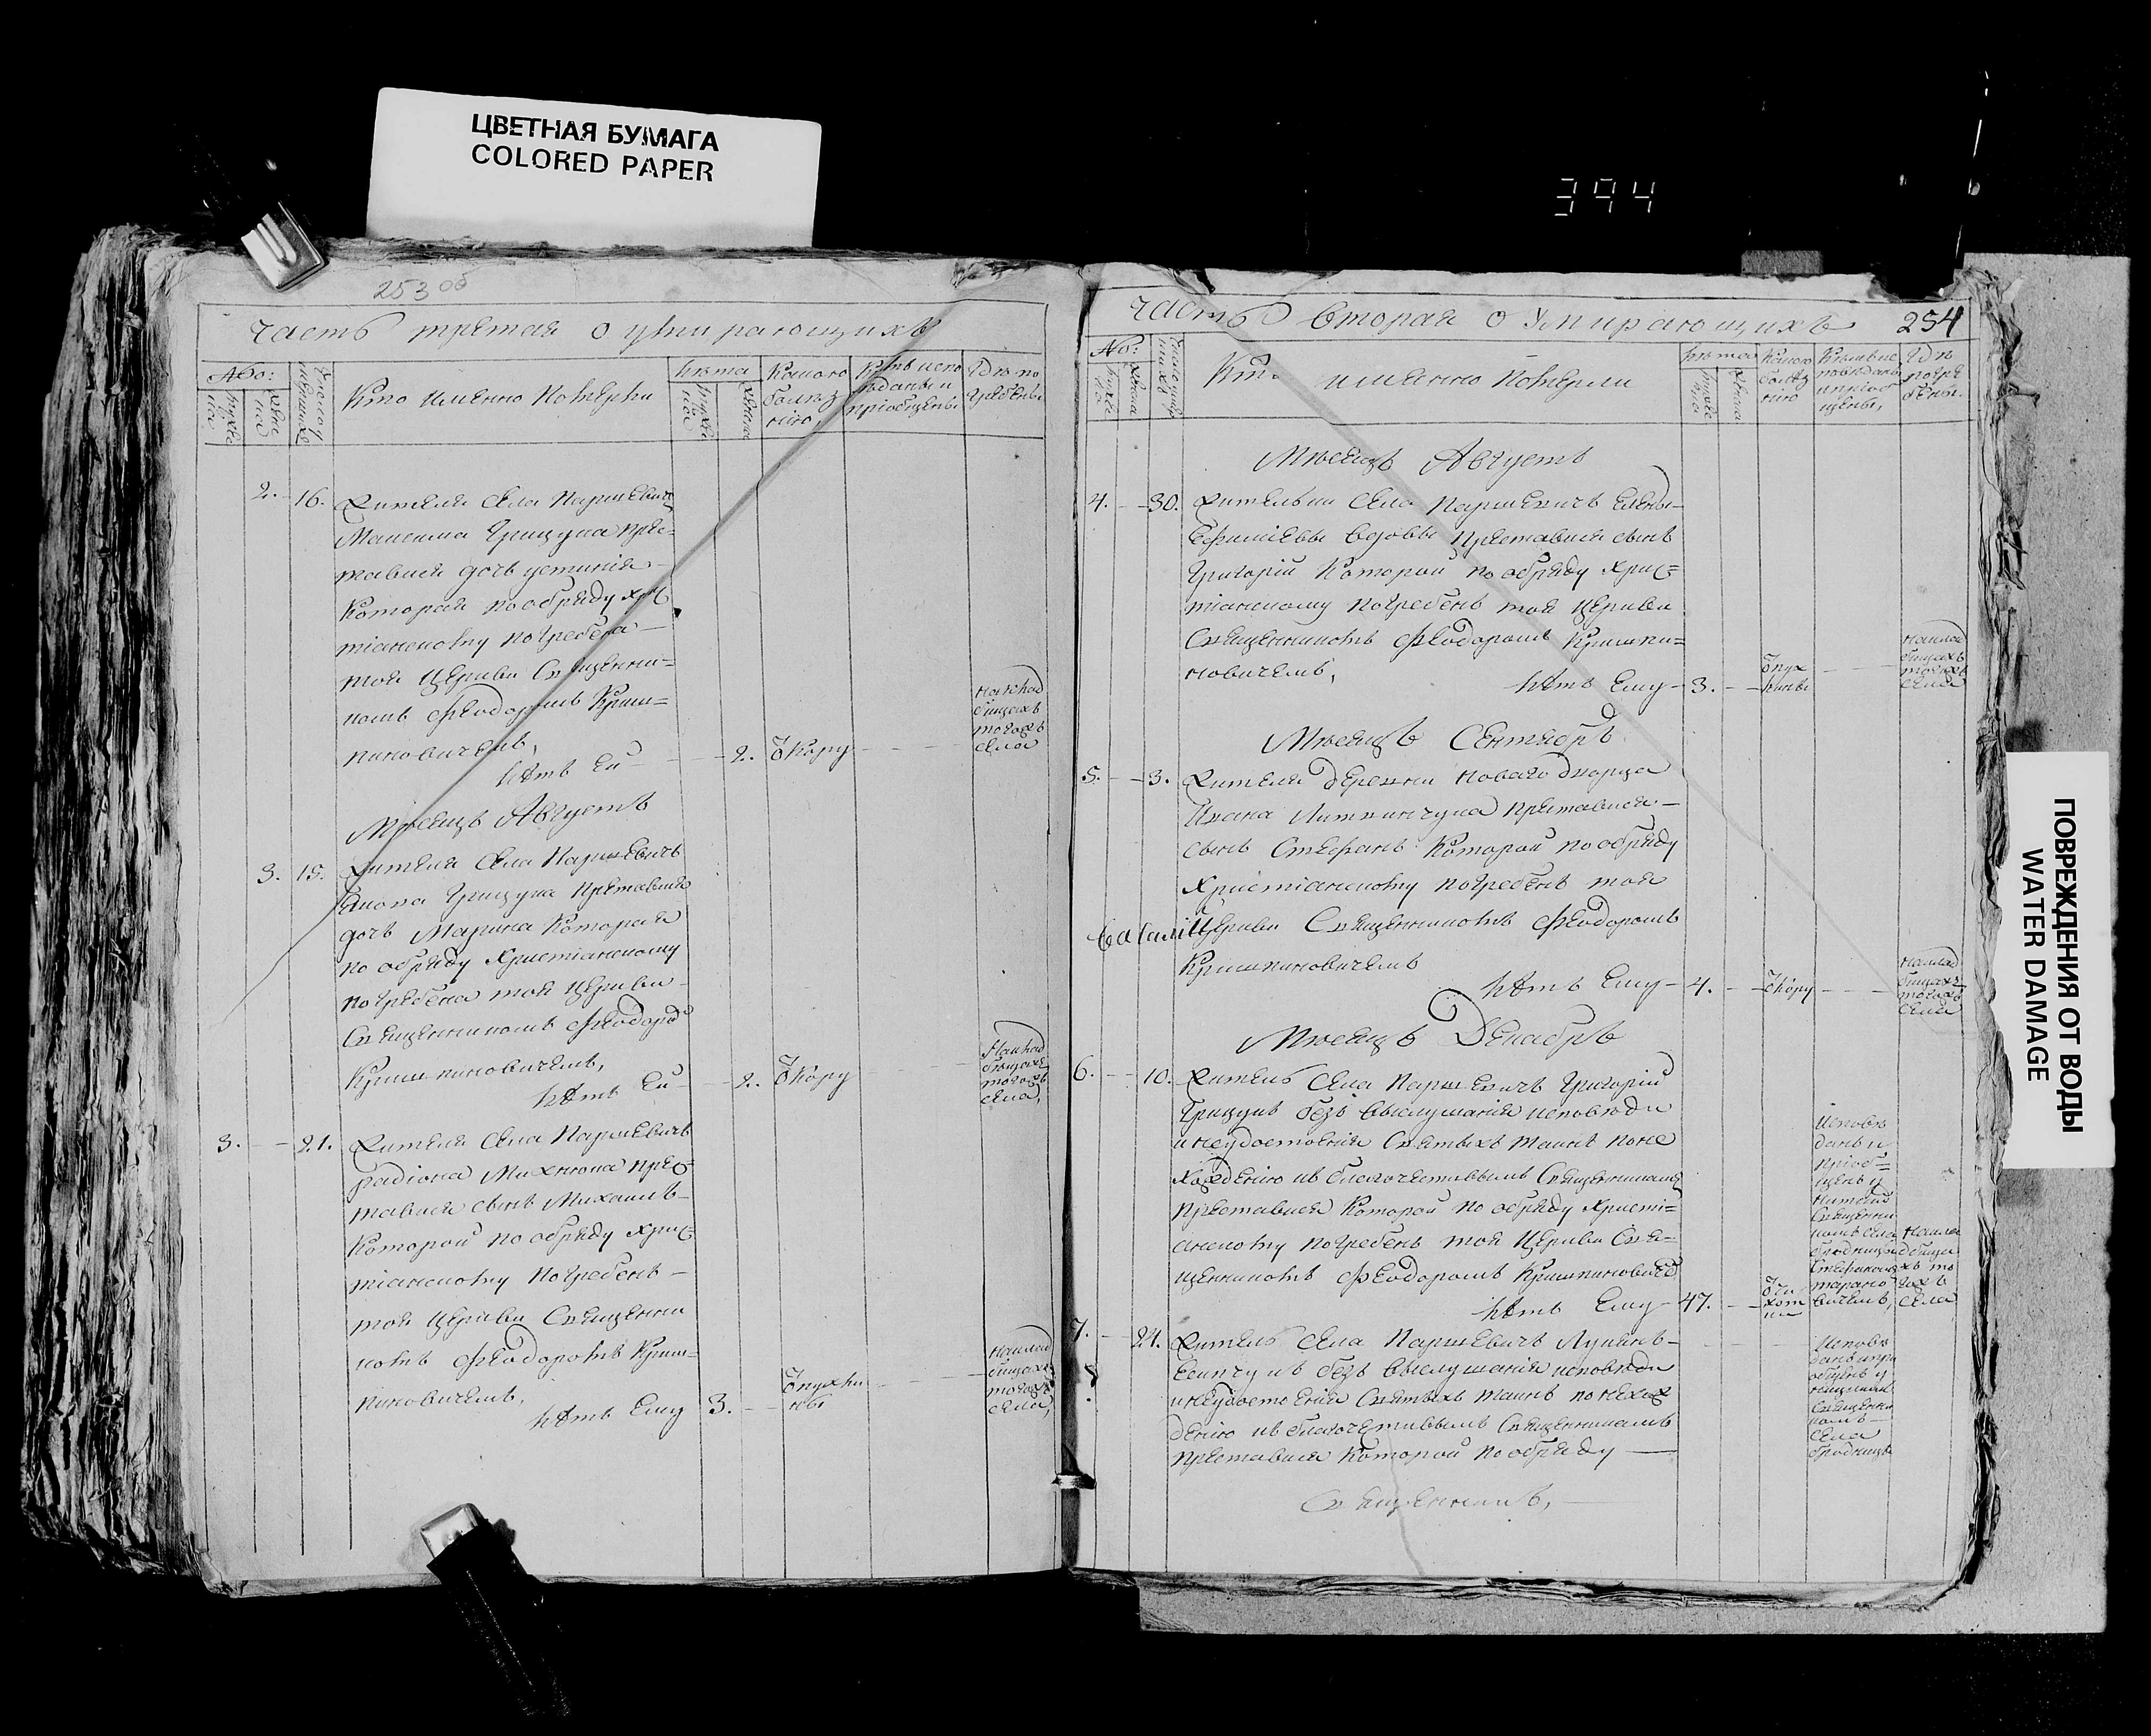 ЦВЕТНАЯ БУМАГА
COLORED PAPER
394
253 об
часть третая о умирающихъ
№:
мужеска
женска
Кто имянно померли
лѣта
мужеска
женска
Какою
болѣз
нію,
Кѣмъ испо
вѣданы и
пріобщены
Гдѣ по
гребены
2. 16. Жителя села Паршевичъ
Максима Грицука пре=
тавися дочъ устинія
Которая по обряду хрис
тіанскому погребена
той Церкви Священни=
комъ Феодоромъ Криш=
пиновичемъ,
лѣтъ Ей 2. Ѿ кору
на клад
бищахъ
тогожъ
села
Мѣсяцъ Августъ
3. 15. Жителя села Паршевичъ
Грицука претавися
дочъ Марина Которая
по обряду христіанскому
погребена той Церкви
Священникомъ Феодоро
Кришпиновичемъ,
лѣтъ Ей 2. Ѿ кору
На клад
бищахъ
тогожъ
села,
3. 21. Жителя села Паршевичъ
радіона Михнюка прес=
тавися сынъ Михаилъ
Которой по обряду хрис
тіанскому погребенъ
той Церкви Священни
комъ Феодоромъ Криш=
пиновичемъ,
лѣтъ Ему 3. Ѿ пухли
ны
на клад
бищахъ
тогожъ
села,
часть вторая о умирающихъ 254
№:
мужеска
женска
Кто имянно померли
лѣта
мужеска
женска
Какою
болѣз
нію
Гдѣ
погре
бены.
Мѣсяцъ Августъ
4. 30. Жительки села Паршевичъ Елены
Ефиміевы вдовы претавися сынъ
Григорій Которой по обряду хрис=
тіанскому погребенъ той Церкви
Священникомъ Феодоромъ Кришпи=
новичемъ,
лѣтъ Ему 3. Ѿ пух
лины
на клад
бищахъ
тогожъ
села
Мѣсяцъ Сентябрь
5. 3. Жителя деревни Новаго дворца
Ивана Литвинчука претавися
сынъ Стефанъ Которой по обряду
христіанскому погребенъ той
Церкви Священникомъ Феодоромъ
Кришпиновичемъ
лѣтъ Ему 4. Ѿ кору
на клад
бищахъ
тогожъ
села
Мѣсяцъ Декабрь
6. 10. Житель села Паршевичъ Григорій
Грицукъ безъ выслушанія исповѣди
и неудостоенія Святыхъ таинъ по не
хожденію къ благочестивымъ Священникамъ
претавися Которой по обряду христі=
анскому погребенъ той Церкви Свя=
щенникомъ Феодоромъ Кришпинович
лѣтъ Ему 47.
Исповѣ
данъ и
пріоб=
щенъ
Священни
комъ села
на клад
бища
хъ то
гожъ
села
7. 24. Житель села Паршевичъ Лукянъ
безъ выслушанія исповѣди
и неудостоенія Святыхъ таинъ по нехож
денію къ благочестивымъ Священникамъ
претавися Которой по обряду
Исповѣ
данъ и прі
общенъ
Священни
комъ
села
Священникъ,
ПОВРЕЖДЕНИЯ ОТ ВОДЫ
WATER DAMAGE